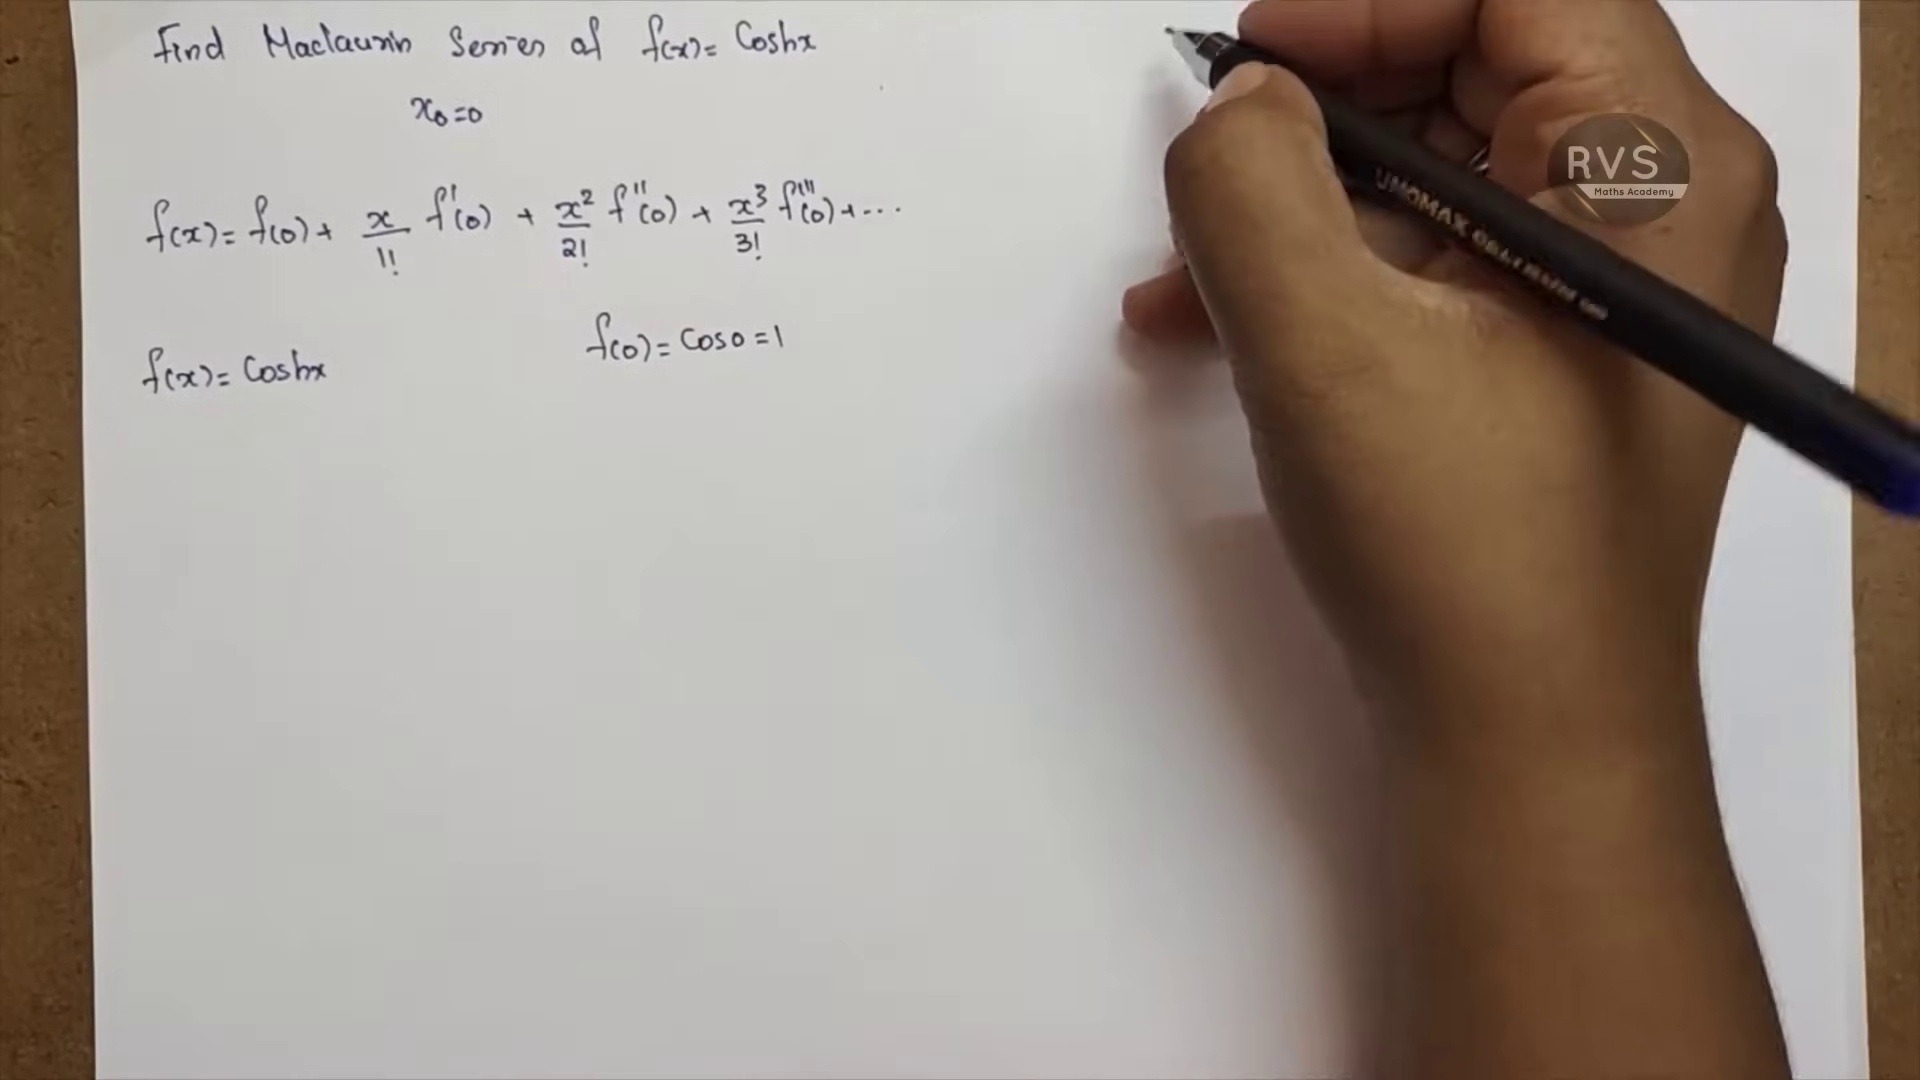 Find Maclaurin Series of f(x)= Coshx
x₀=0
f(x)= f(0)+ x/1! f'(0) + x²/2! f''(0) + x³/3! f'''(0)+...
f(0)= Cos0=1
f(x)= Coshx
RVS
Maths Academy